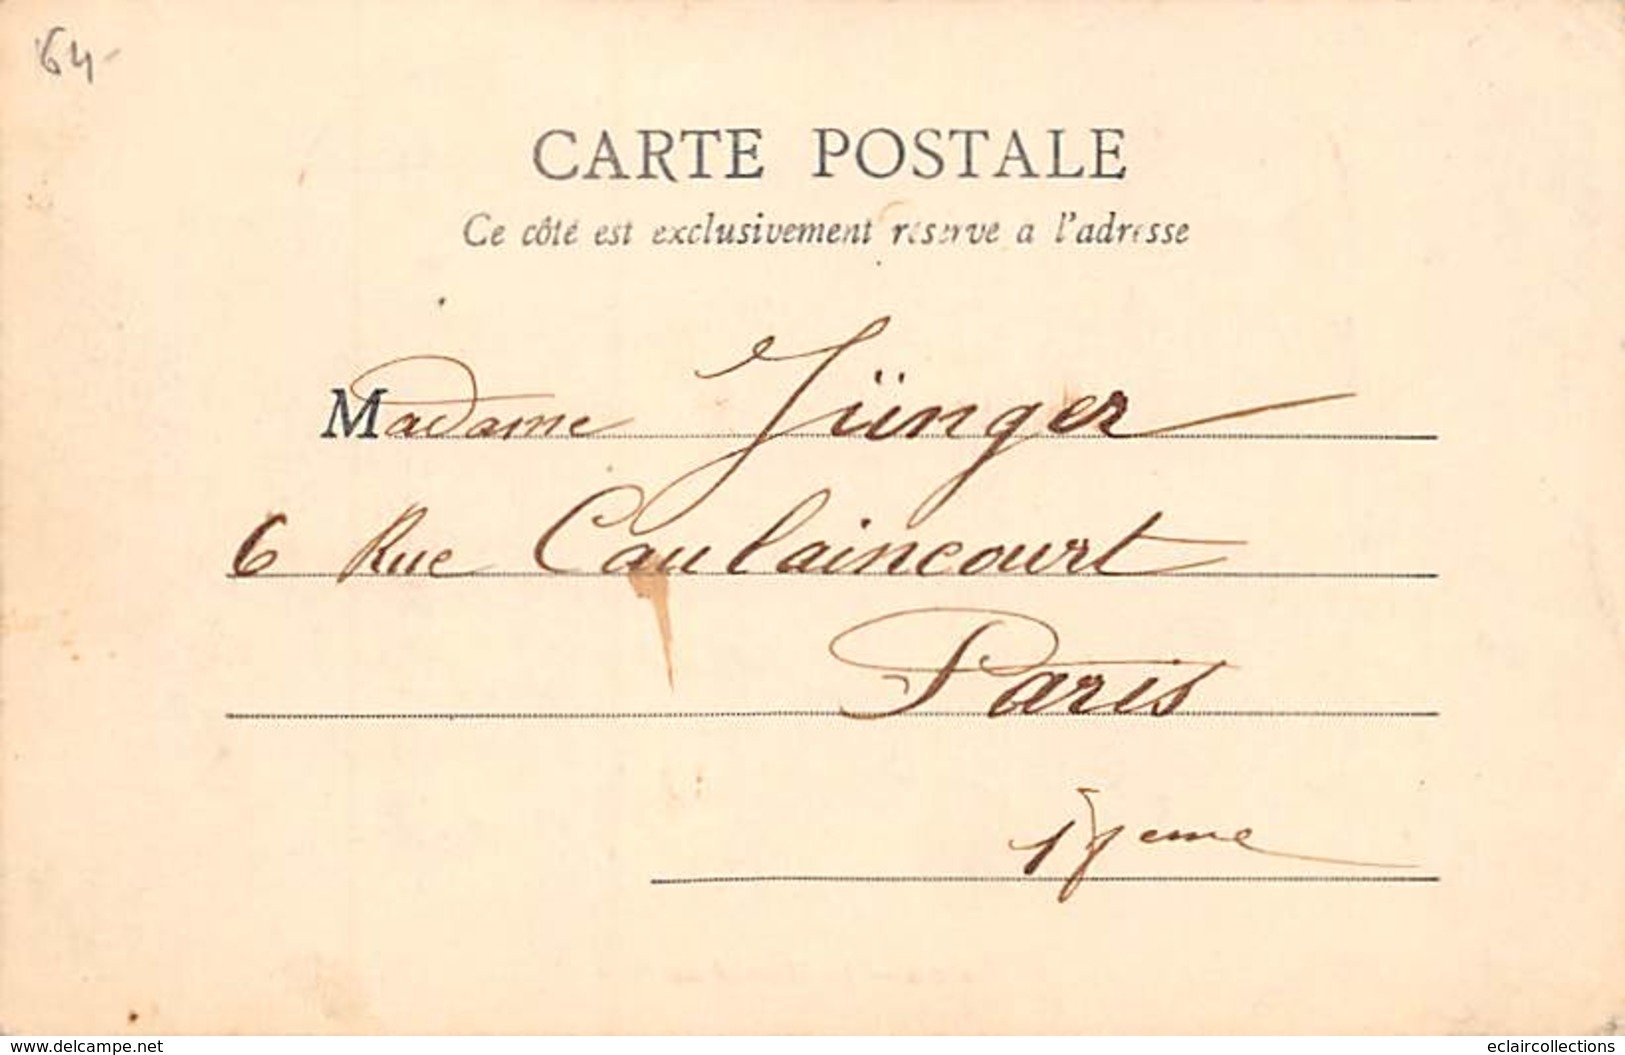 64-
CARTE POSTALE
Ce côté est exclusivement réservé a l'adresse
Madame Jünger
6 Rue Caulaincourt
Paris
17eme
www.delcampe.net
eclaircollections